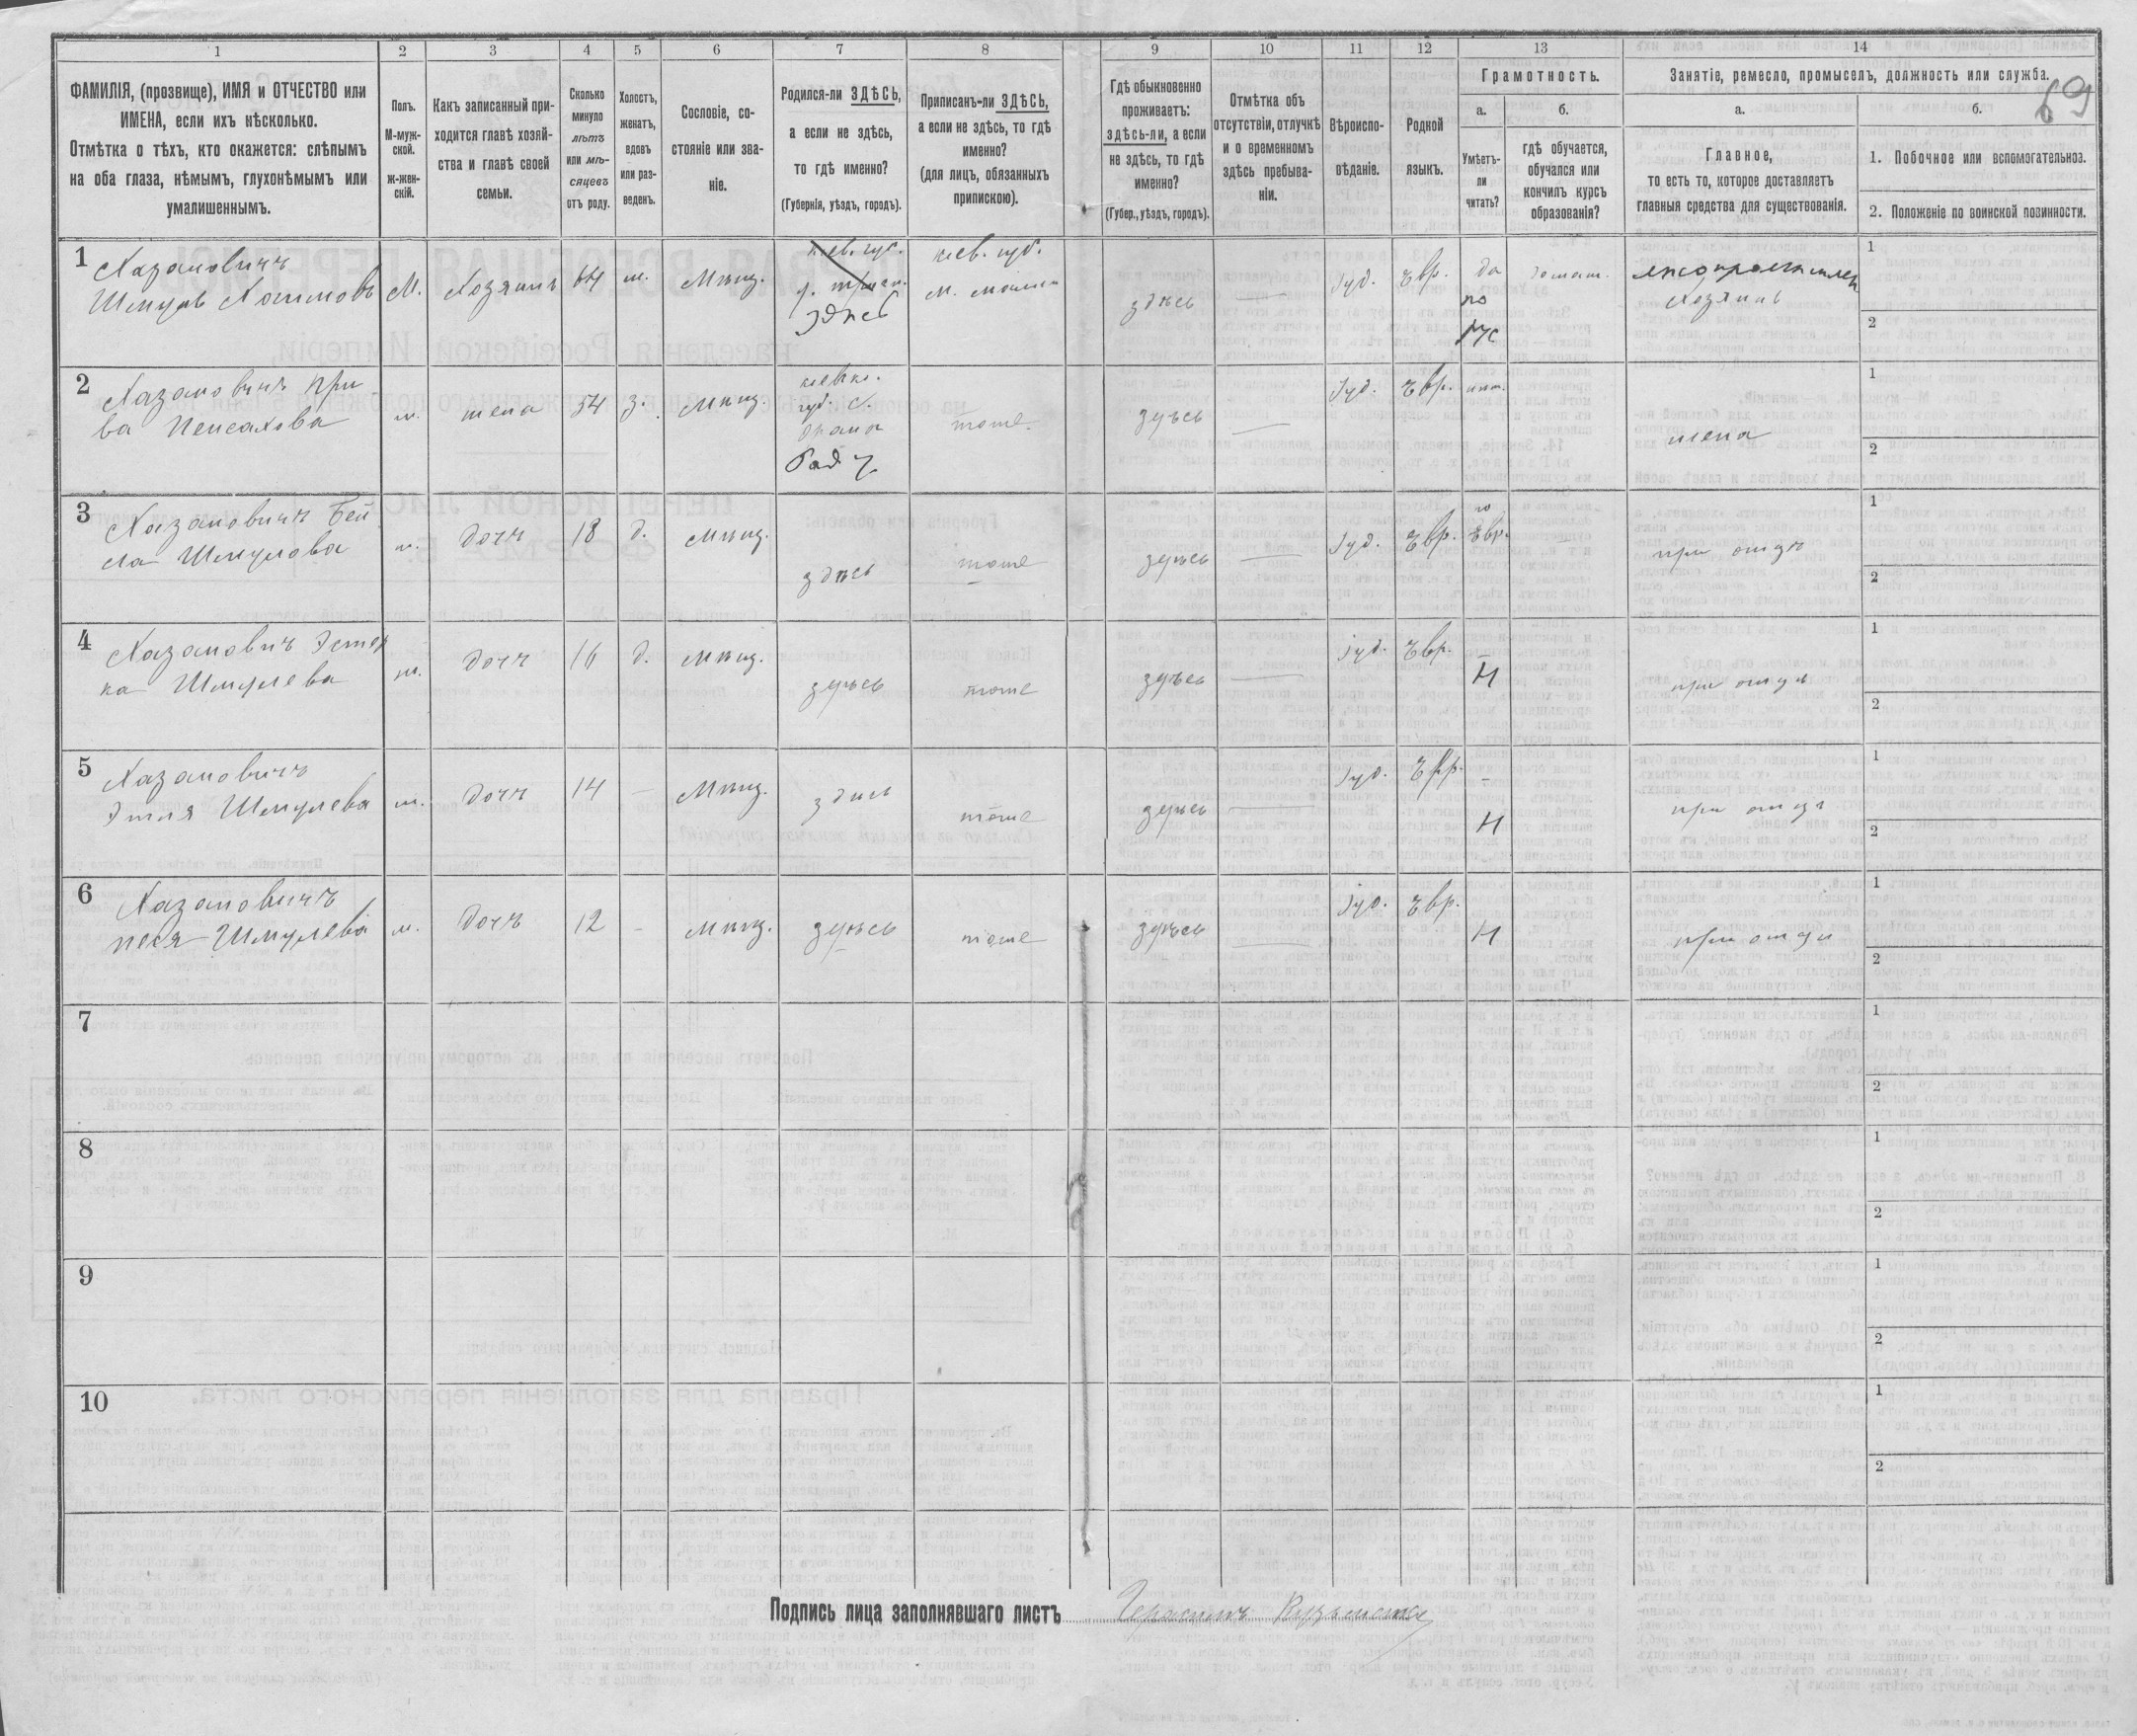 1
2
3
4
5
6
7
8
9
10
11
12
13
14
69
ФАМИЛІЯ, (прозвище), ИМЯ и ОТЧЕСТВО или
ИМЕНА, если ихъ нѣсколько.
Отмѣтка о тѣхъ, кто окажется: слѣпымъ
на оба глаза, нѣмымъ, глухонѣмымъ или
умалишеннымъ.
Полъ.
М-муж-
ской.
ж-жен-
скій.
Какъ записанный при-
ходится главѣ хозяй-
ства и главѣ своей
семьи.
Сколько
минуло
лѣтъ
или мѣ-
сяцевъ
отъ роду.
Холостъ,
женатъ,
вдовъ
или раз-
веденъ.
Сословіе, со-
стояніе или зва-
ніе.
Родился-ли ЗДѢСЬ,
а если не здѣсь,
то гдѣ именно?
(Губернія, уѣздъ, городъ).
Приписанъ-ли ЗДѢСЬ,
а если не здѣсь, то гдѣ
именно?
(для лицъ, обязанныхъ
припискою).
Гдѣ обыкновенно
проживаетъ:
здѣсь-ли, а если
не здѣсь, то гдѣ
именно?
(Губер., уѣздъ, городъ).
Отмѣтка объ
отсутствіи, отлучкѣ
и о временномъ
здѣсь пребыва-
ніи.
Вѣроиспо-
вѣданіе.
Родной
языкъ.
Грамотность.
а.
Умѣетъ-
ли
читать?
б.
гдѣ обучается,
обучался или
кончилъ курсъ
образованія?
Занятіе, ремесло, промыселъ, должность или служба.
а.
Главное,
то есть то, которое доставляетъ
главныя средства для существованія.
б.
1. Побочное или вспомогательное.
2. Положеніе по воинской повинности.
1
Хазановичъ
Шмуль Хаимовъ
М.
Хозяинъ
64
ж.
Мѣщ.
Кіев. губ.
здѣсь
Кіев. губ.
здѣсь
—
Іуд.
Евр.
да
по
рус
домаш.
хозяинъ
1
2
2
Хазановичъ
ва Пейсахова
ж.
жена
54
з.
Мѣщ.
губ.
тоже
здѣсь
—
Іуд.
Евр.
нѣт.
жена
1
2
3
Хазановичъ Бей
ла Шмулова
ж.
дочь
18
д.
Мѣщ.
здѣсь
тоже
здѣсь
—
Іуд.
Евр.
по
Евр.
—
при отцѣ
1
2
4
Хазановичъ Эстер
ка Шмулева
ж.
дочь
16
д.
Мѣщ.
здѣсь
тоже
здѣсь
—
Іуд.
Евр.
Н
при отцѣ
1
2
5
Хазановичъ
Этля Шмулева
ж.
дочь
14
—
Мѣщ.
здѣсь
тоже
здѣсь
—
Іуд.
Евр.
Н
при отцѣ
1
2
6
Хазановичъ
Песя Шмулева
ж.
дочь
12
-
Мѣщ.
здѣсь
тоже
здѣсь
—
Іуд.
Евр.
Н
при отцѣ
1
2
7
1
2
8
1
2
9
1
2
10
1
2
Подпись лица заполнявшаго листъ